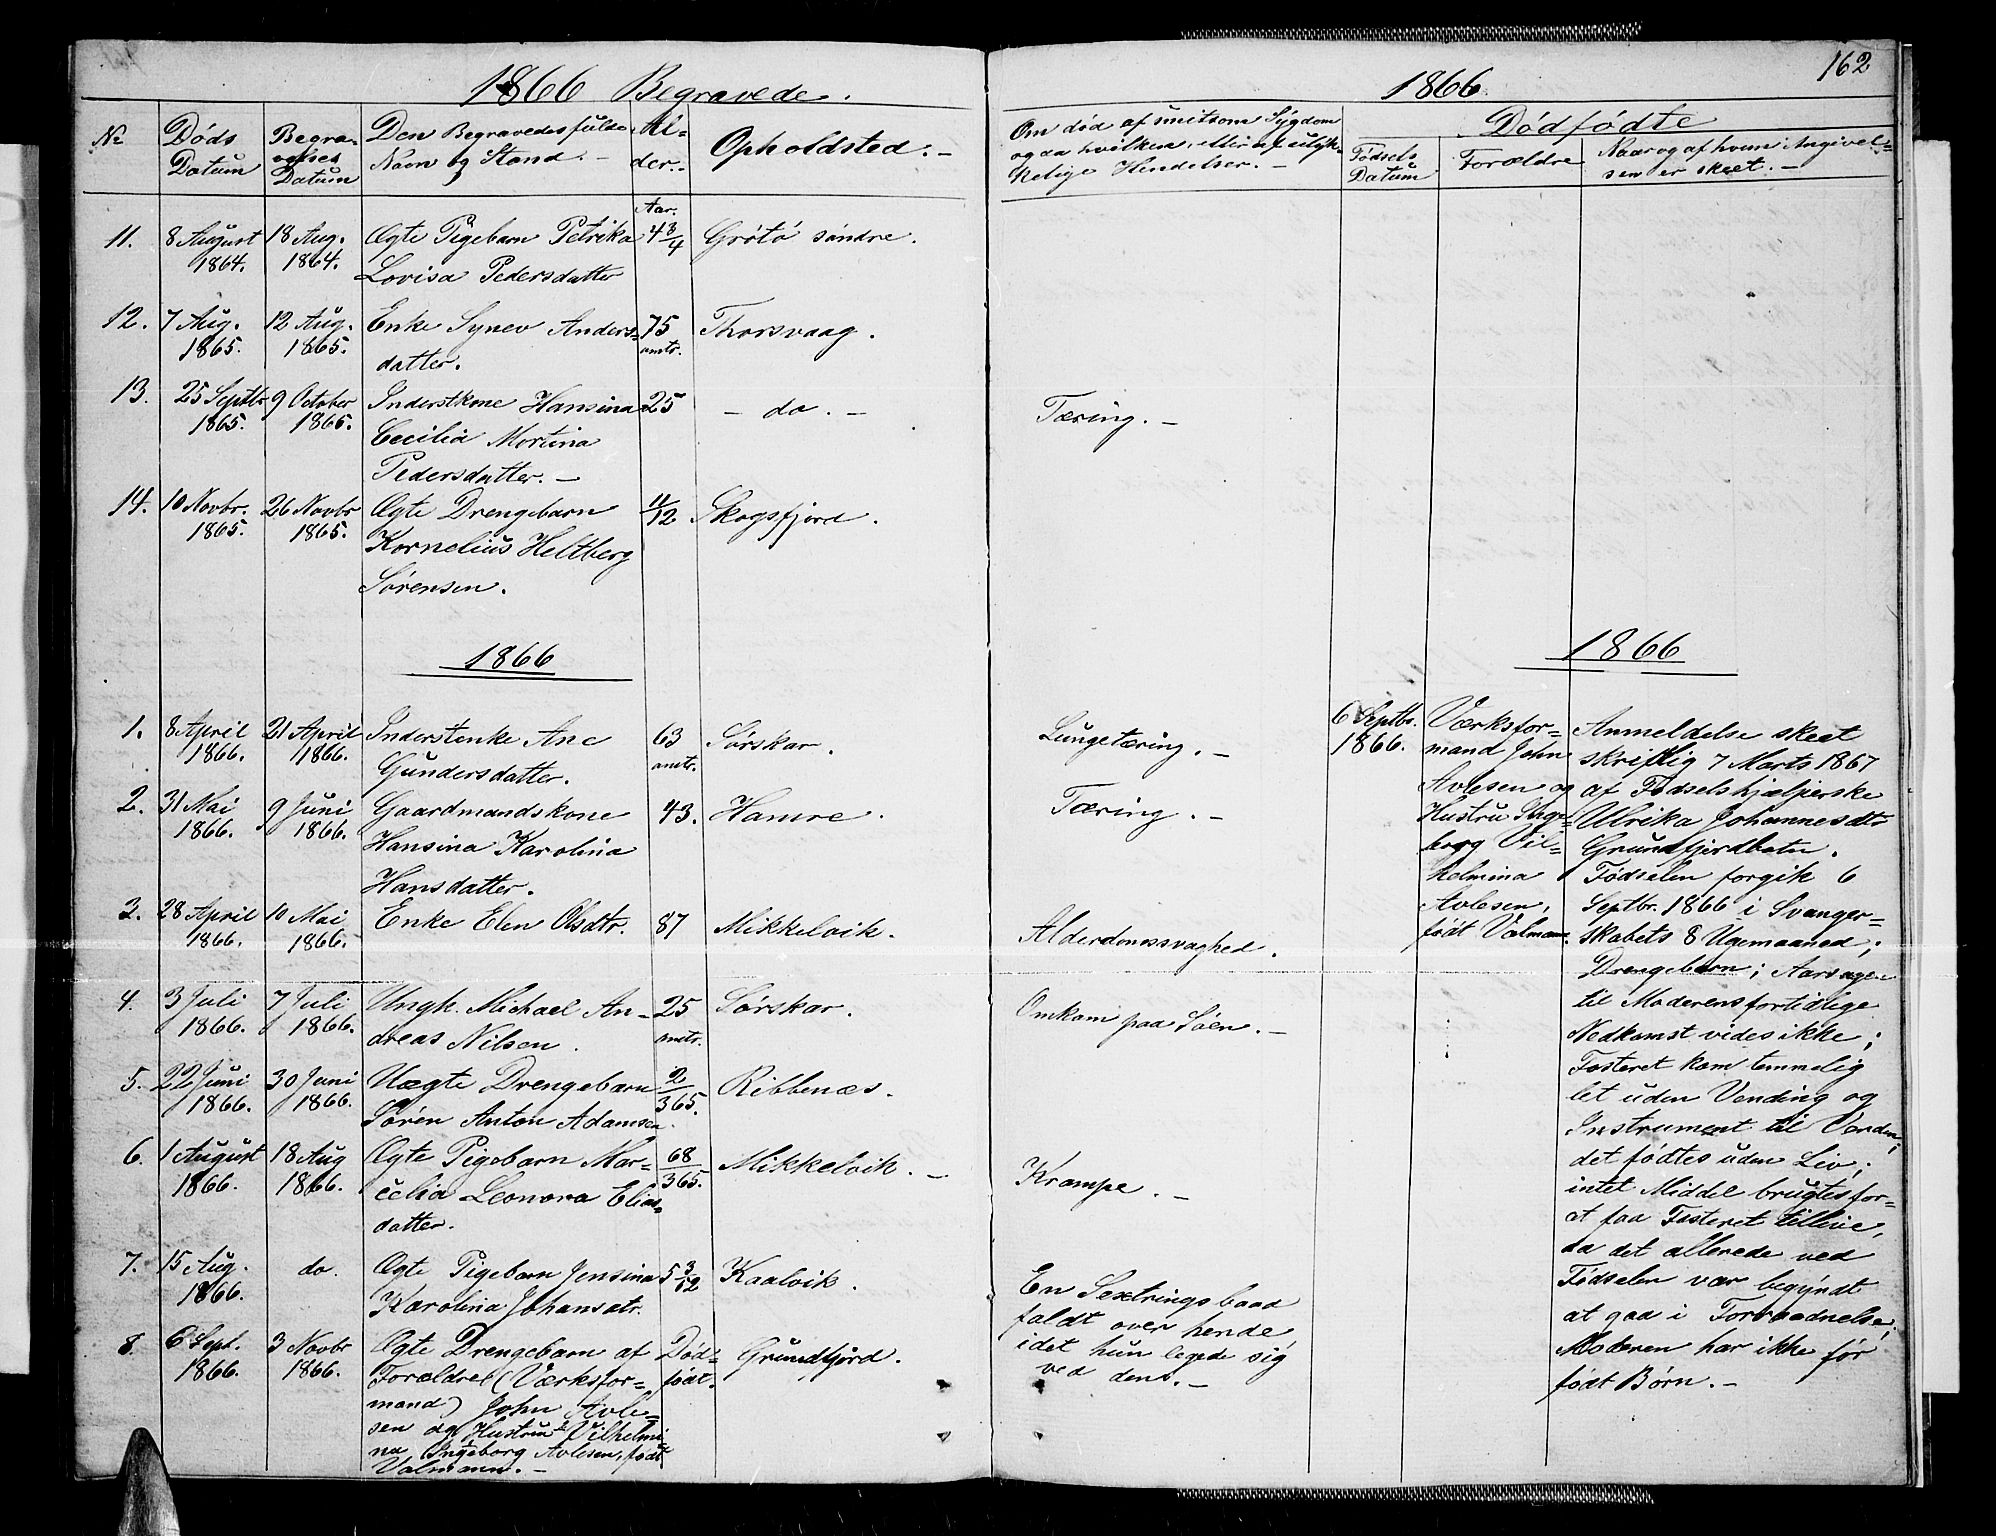 162
1866 Begravede.
1866
№
Døds Datum
Begravelses Datum
Den Begravedes fulde Navn og Stand. –
Alder. –
Opholdsted. –
Om død af smitsom Sygdom
og da hvilken, eller af ulyk-
kelige Hendelser. –
Dødfødte
Fødsels Datum
Forældre
Naar og af hvem Angivel-
sen er skeet. –
Aar.
11. 8 August 18 Aug. Ægte Pigebarn Petrika 4 3/4 Grøtø søndre.
1864. 1864. Lovisa Pedersdatter
12. 7 Aug. 12 Aug. Enke Synev Anders- 75 Thorsvaag.
1865. 1865. datter. omtr.
13. 25 Septbr 9 October Inderstkone Hansina 25 – do. – Tæring. –
1865. 1865. Cecilia Martina
Pedersdatter. –
14. 10 Novbr. 26 Novbr Ægte Drengebarn 11/12 Skogsfjord.
1865. 1865. Kornelius Heltberg
Sørensen.
1866
1. 8 April 21 April Inderstenke Ane 63 Sørskar. Lungetæring. –
1866. 1866. Gundersdatter. omtr.
2. 31 Mai 9 Juni Gaardmandskone 43. Hamre. Tæring. –
1866. 1866. Hansina Karolina
Hansdatter.
3. 28 April 10 Mai Enke Elen Olsdtr. 87 Mikkelvik. Alderdomssvaghed.
1866. 1866.
4. 3 Juli 7 Juli Ungk. Michael An- 25 Sørskar. Omkom paa Søen. –
1866. 1866. dreas Nilsen. omtr.
5. 22 Juni 30 Juni Uægte Drengebarn 2/365. Ribbenæs.
1866. 1866. Søren Anton Adamsen.
6. 1 August 18 Aug Ægte Pigebarn Mar- 68/365. Mikkelvik. – Krampe. –
1866. 1866. celia Leonora Elias-
datter.
7. 15 Aug. do. Ægte Pigebarn Jensina 5 3/12 Kaalvik. En Sextringsbaad
1866. Karolina Johansdtr. faldt over hende,
idet hun legede sig
ved den. –
8. 6 Sept. 3 Novbr Ægte Drengebarn af Død- Grundfjord.
1866. 1866. Forældrel (Værksfor- født.
mand) John Avle-
sen og Hustru Vilhelmi
na Ingeborg Avlesen, født
Valmann. –
1866
6 Septbr.
1866.
Værksfor-
mand John
Avlesen og
Hustru Inge-
borg Vil-
helmina
Avlesen,
født Valmann.
Anmeldelse skeet
skriftlig 7 Marts 1867
af Fødselshjælperske
Ulrika Johannesdtr
Grundfjordbotn.
Fødselen forgik 6
Septbr. 1866 i Svanger-
skabets 8 Ugemaaned;
Drengebarn; Aarsagen
til Moderens fortidlige
Nedkomst vides ikke;
Fosteret kom temmelig
let uden Vending og
Instrument til Verden;
det fødtes uden Liv;
intet Middel brugtes for-
at faa Fosteret tillive,
da det allerede ved
Fødselen var begyndt
at gaa i Forraadnelse;
Moderen har ikke før
født Børn. –